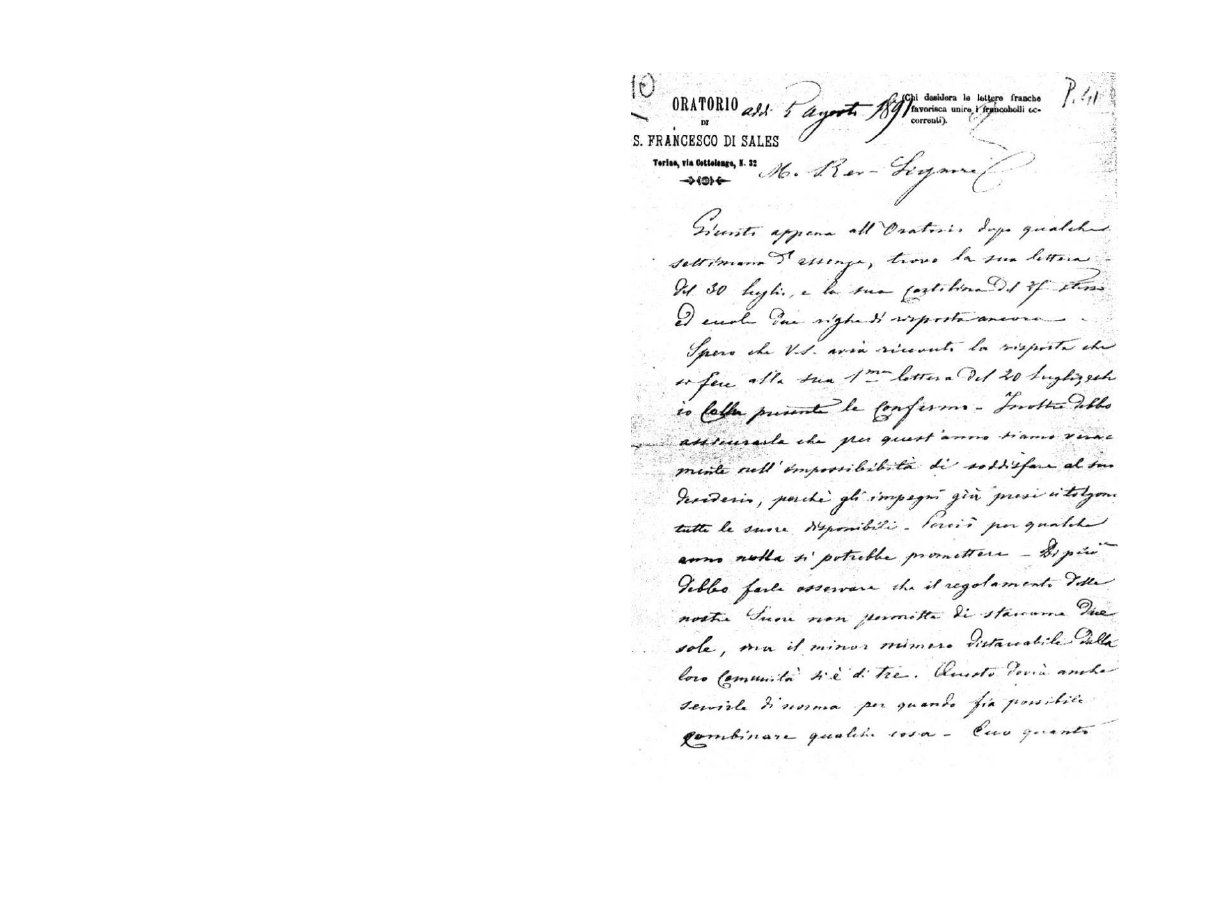 10
P. 41
ORATORIO
DI
S. FRANCESCO DI SALES
Torino, via Cottolengo, N. 32
addì 5 Agosto 1891
(Chi desidera le lettere franche
favorisca unire i francobolli oc-
correnti).
M. Rev. Signore
Giunto appena all'Oratorio dopo qualche
settimana d'assenza, trovo la sua lettera
del 30 luglio, e la sua cartolina del stesso
ed eccole due righe di risposta ancora
Spero che V.S. avrà ricevuto la risposta che
si fece alla sua 1ma lettera del 20 luglio, e che
io colla presente le confermo - Inoltre debbo
assicurarla che per quest'anno siamo vera-
mente nell'impossibilità di soddisfare al suo
desiderio, perchè gli impegni già presi ci tolgono
tutte le suore disponibili - Perciò per qualche
anno nulla si potrebbe promettere - Di più
debbo farle osservare che il regolamento delle
nostre Suore non permette di staccarne due
sole, ma il minor numero distaccabile dalla
loro Comunità si è di tre. Questo dovrà anche
servirle di norma per quando fia possibile
combinare qualche cosa - Ecco quanto